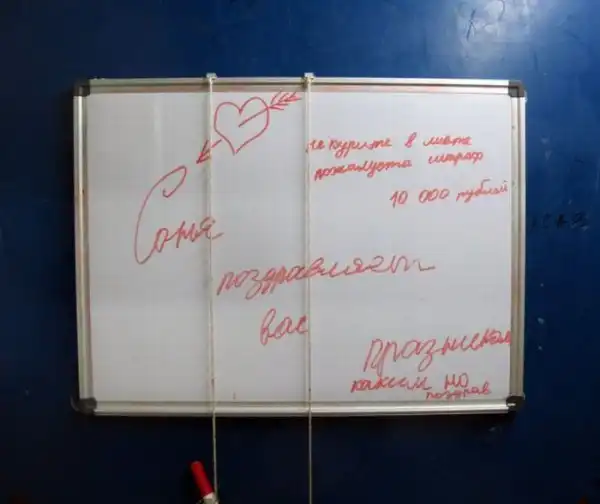 не курите в лифте
пожалуста штраф
10 000 рублей
Сонья
поздравляет
вас
празнеком
каким но
поздрав